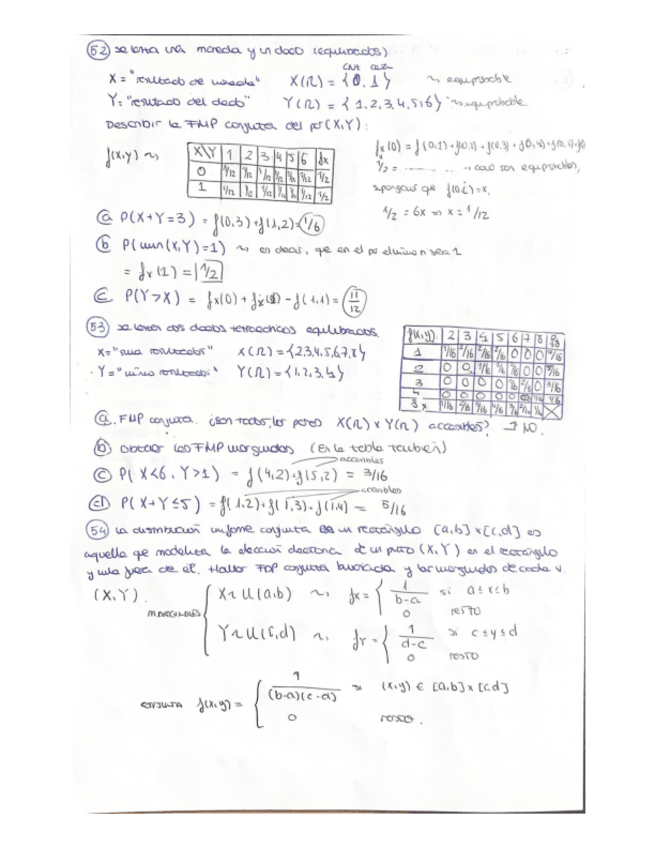 52 se lanza una moneda y un dado (equilibrados)
cara cruz
X = "resultado de moneda" X(Ω) = {0, 1} ~> equiprobable
Y = "resultado del dado" Y(Ω) = {1, 2, 3, 4, 5, 6} ~> equiprobable
Describir la FMP conjunta del par (X,Y):
f(x,y) ~>
X\Y 1 2 3 4 5 6 fx
0 1/12 1/12 1/12 1/12 1/12 1/12 1/2
1 1/12 1/12 1/12 1/12 1/12 1/12 1/2
fx(0) = f(0,1) + f(0,2) + f(0,3) + f(0,4) + f(0,5) + f(0,6)
1/2 = ... como son equiprobables,
supongamos que f(0,i) = x.
1/2 = 6x => x = 1/12
a P(X+Y=3) = f(0,3) + f(1,2) = 1/6
b P(min(X,Y)=1) ~> es decir, que en el par el mínimo sea 1
= fx(1) = 1/2
c P(Y>X) = fx(0) + fx(1) - f(1,1) = 11/12
53 se lanzan dos dados tetraédricos equilibrados.
X = "suma resultados" X(Ω) = {2,3,4,5,6,7,8}
Y = "mínimo resultados" Y(Ω) = {1,2,3,4}
f(x,y) 2 3 4 5 6 7 8
1 1/16 2/16 2/16 2/16 0 0 0
2 0 0 1/16 2/16 2/16 0 0
3 0 0 0 0 1/16 2/16 0 3/16
4 0 0 0 0 0 0 1/16 1/16
fx 1/16 2/16 3/16 4/16 3/16 2/16 1/16
a FMP conjunta. ¿son todos los pares X(Ω) x Y(Ω) accesibles? → NO.
b obtener las FMP marginales (En la tabla también)
accesibles
c P(X<6, Y>1) = f(4,2) + f(5,2) = 3/16
accesibles
d P(X+Y≤5) = f(1,2) + f(1,3) + f(1,4) = 5/16
54 La distribución uniforme conjunta en un rectángulo [a,b] x [c,d] es
aquella que modeliza la elección aleatoria de un punto (X,Y) en el rectángulo
y nula fuera de él. Hallar FDP conjunta buscada y las marginales de cada v.
(X,Y).
MARGINALES
X ~ U(a,b) ~> fx = { 1/(b-a) si a ≤ x ≤ b
0 resto
Y ~ U(c,d) ~> fY = { 1/(d-c) si c ≤ y ≤ d
0 resto
conjunta f(x,y) = { 1/((b-a)(c-d)) si (x,y) ∈ [a,b] x [c,d]
0 resto.